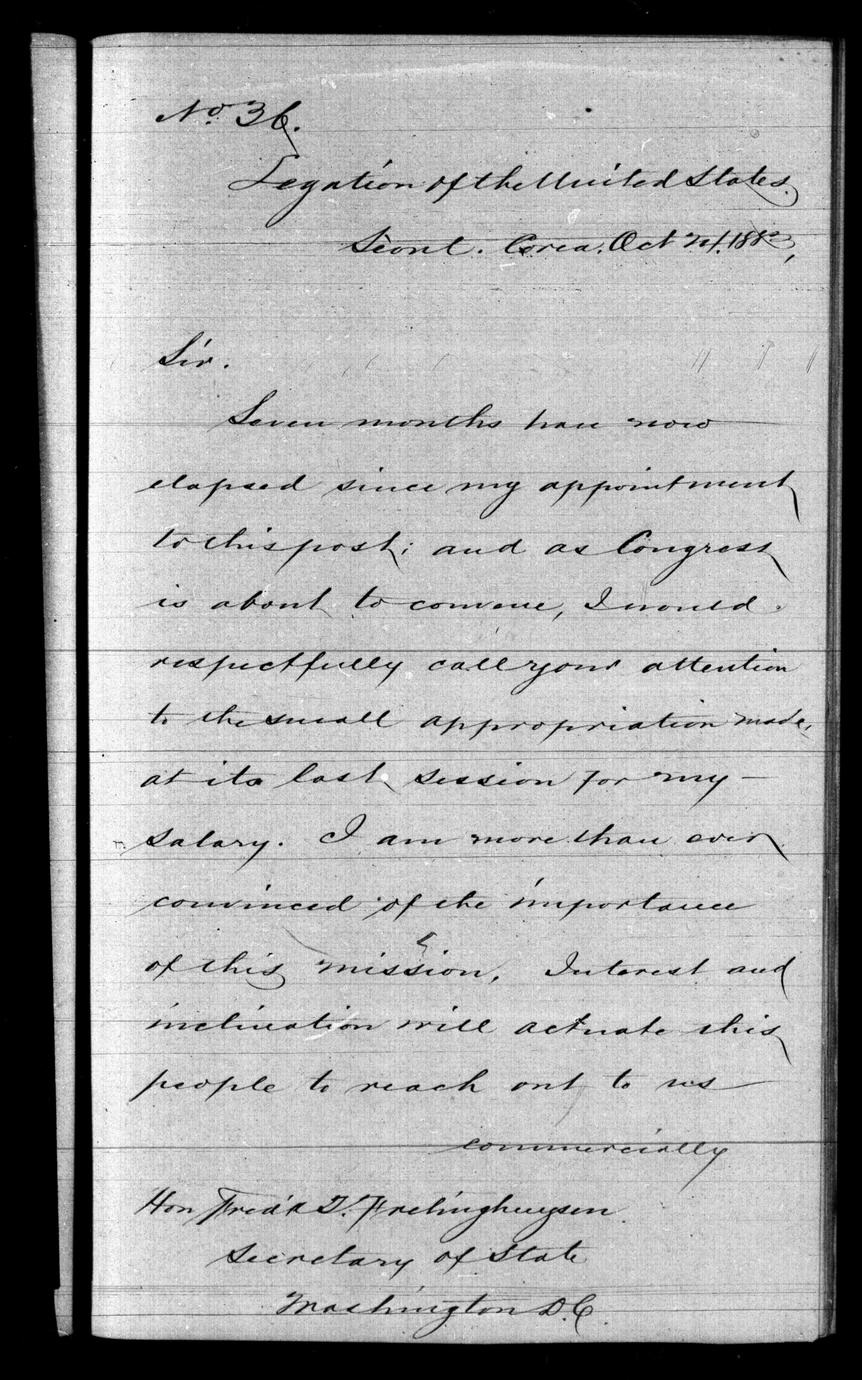 No. 36.
Legation of the United States.
Seoul. Corea. Oct 21. 1883,
Sir.
Seven months have now
elapsed since my appointment
to this post; and as Congress
is about to convene, I would
respectfully call your attention
to the small appropriation made,
at its last session for my
salary. I am more than ever
convinced of the importance
of this mission. Interest and
inclination will actuate this
people to reach out to us
commercially
Hon Fred'k T. Frelinghuysen
Secretary of State
Washington D.C.